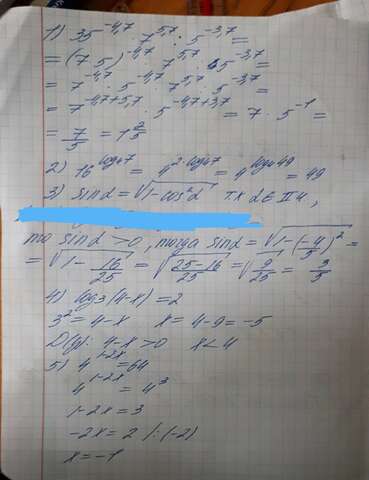 1) 35^-4,7 · 7^5,7 : 5^-3,7 =
= (7 5)^-4,7 · 7^5,7 : 5^-3,7 =
= 7^-4,7 · 5^-4,7 · 7^5,7 : 5^-3,7 =
= 7^-4,7+5,7 · 5^-4,7+3,7 = 7 · 5^-1 =
= 7/5 = 1 2/5
2) 16^log₄7 = 4^2·log₄7 = 4^log₄49 = 49
3) sinα = √1-cos²α т.к α ∈ II ч,
то sinα > 0, тогда sinα = √1-(-4/5)² =
= √1 - 16/25 = √25-16/25 = √9/25 = 3/5
4) log₃(4-x) = 2
3² = 4-x x = 4-9 = -5
D(y): 4-x>0 x<4
5) 4^1-2x = 64
4^1-2x = 4^3
1-2x = 3
-2x = 2 /:(-2)
x = -1